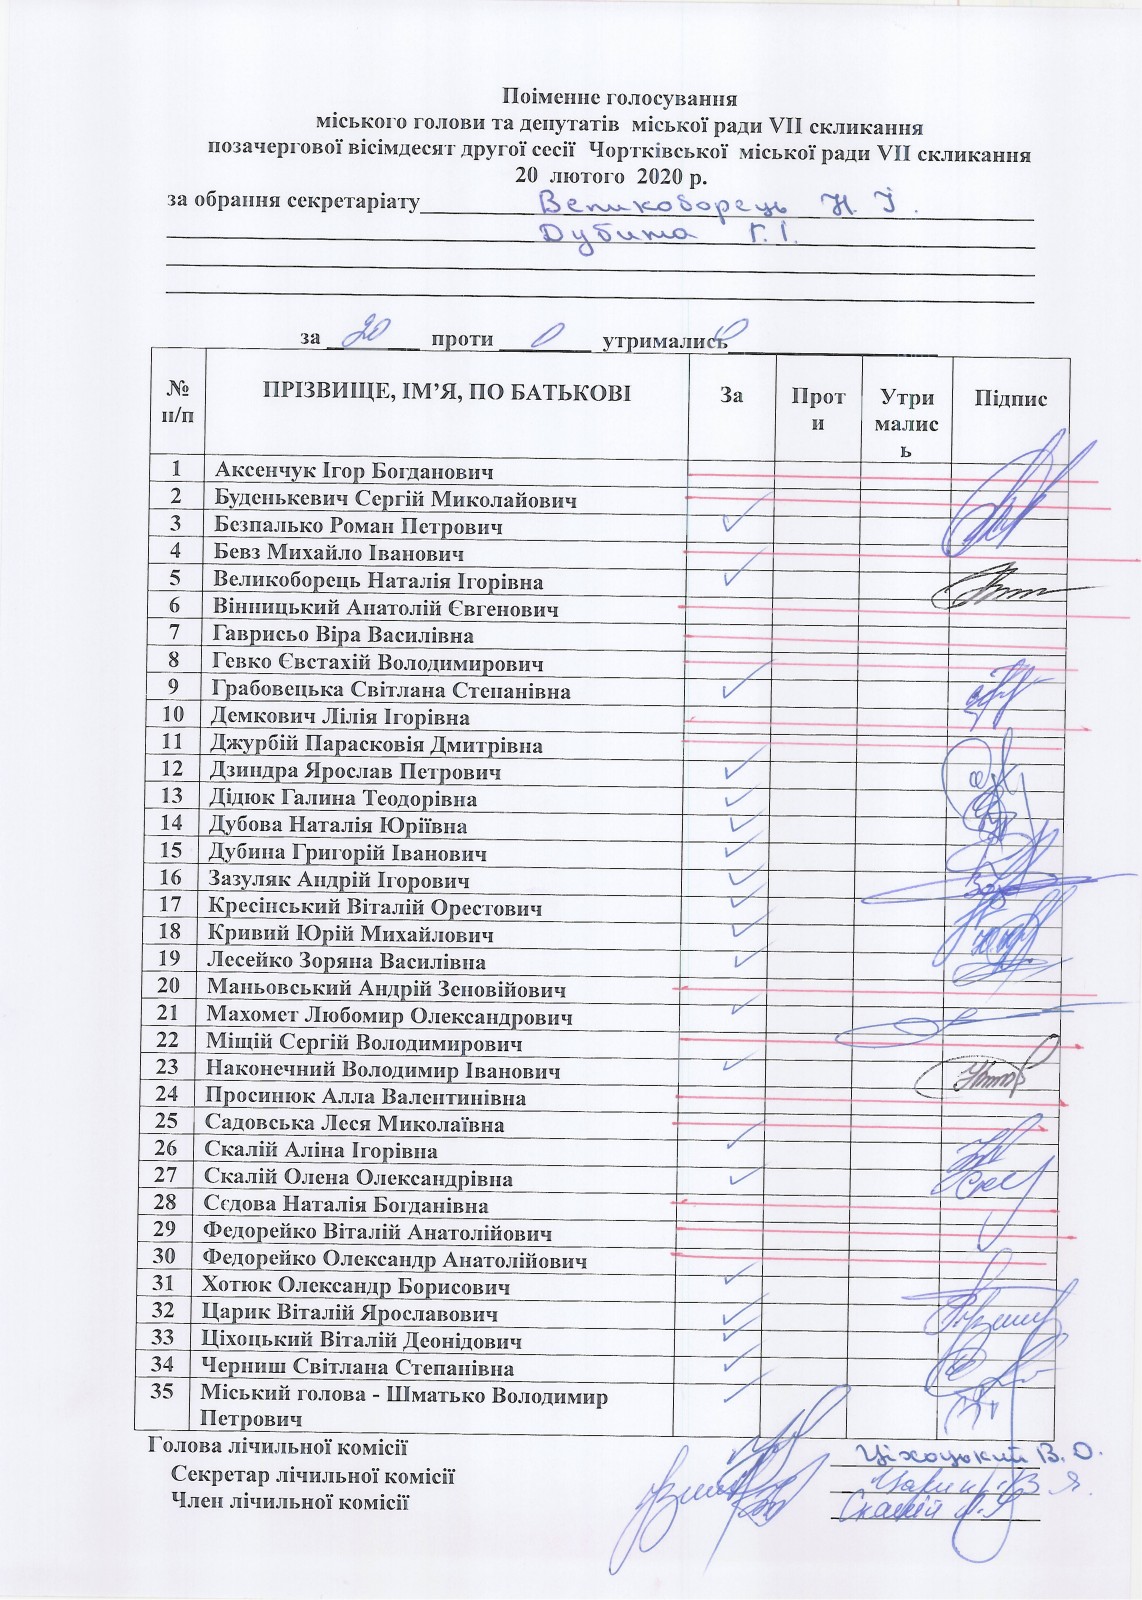 Поіменне голосування
міського голови та депутатів міської ради VII скликання
позачергової вісімдесят другої сесії Чортківської міської ради VII скликання
20 лютого 2020 р.
за обрання секретаріату Великоборець Н. І.
Дубина Г. І.
за 20 проти 0 утримались 0
№ п/п ПРІЗВИЩЕ, ІМ’Я, ПО БАТЬКОВІ За Проти Утрималис ь Підпис
1 Аксенчук Ігор Богданович
2 Буденькевич Сергій Миколайович
3 Безпалько Роман Петрович
4 Бевз Михайло Іванович
5 Великоборець Наталія Ігорівна
6 Вінницький Анатолій Євгенович
7 Гаврисьо Віра Василівна
8 Гевко Євстахій Володимирович
9 Грабовецька Світлана Степанівна
10 Демкович Лілія Ігорівна
11 Джурбій Парасковія Дмитрівна
12 Дзиндра Ярослав Петрович
13 Дідюк Галина Теодорівна
14 Дубова Наталія Юріївна
15 Дубина Григорій Іванович
16 Зазуляк Андрій Ігорович
17 Кресінський Віталій Орестович
18 Кривий Юрій Михайлович
19 Лесейко Зоряна Василівна
20 Маньовський Андрій Зеновійович
21 Махомет Любомир Олександрович
22 Міщій Сергій Володимирович
23 Наконечний Володимир Іванович
24 Просинюк Алла Валентинівна
25 Садовська Леся Миколаївна
26 Скалій Аліна Ігорівна
27 Скалій Олена Олександрівна
28 Сєдова Наталія Богданівна
29 Федорейко Віталій Анатолійович
30 Федорейко Олександр Анатолійович
31 Хотюк Олександр Борисович
32 Царик Віталій Ярославович
33 Ціхоцький Віталій Деонідович
34 Черниш Світлана Степанівна
35 Міський голова - Шматько Володимир
Петрович
Голова лічильної комісії Ціхоцький В. О.
Секретар лічильної комісії Царик В Я.
Член лічильної комісії Скалій